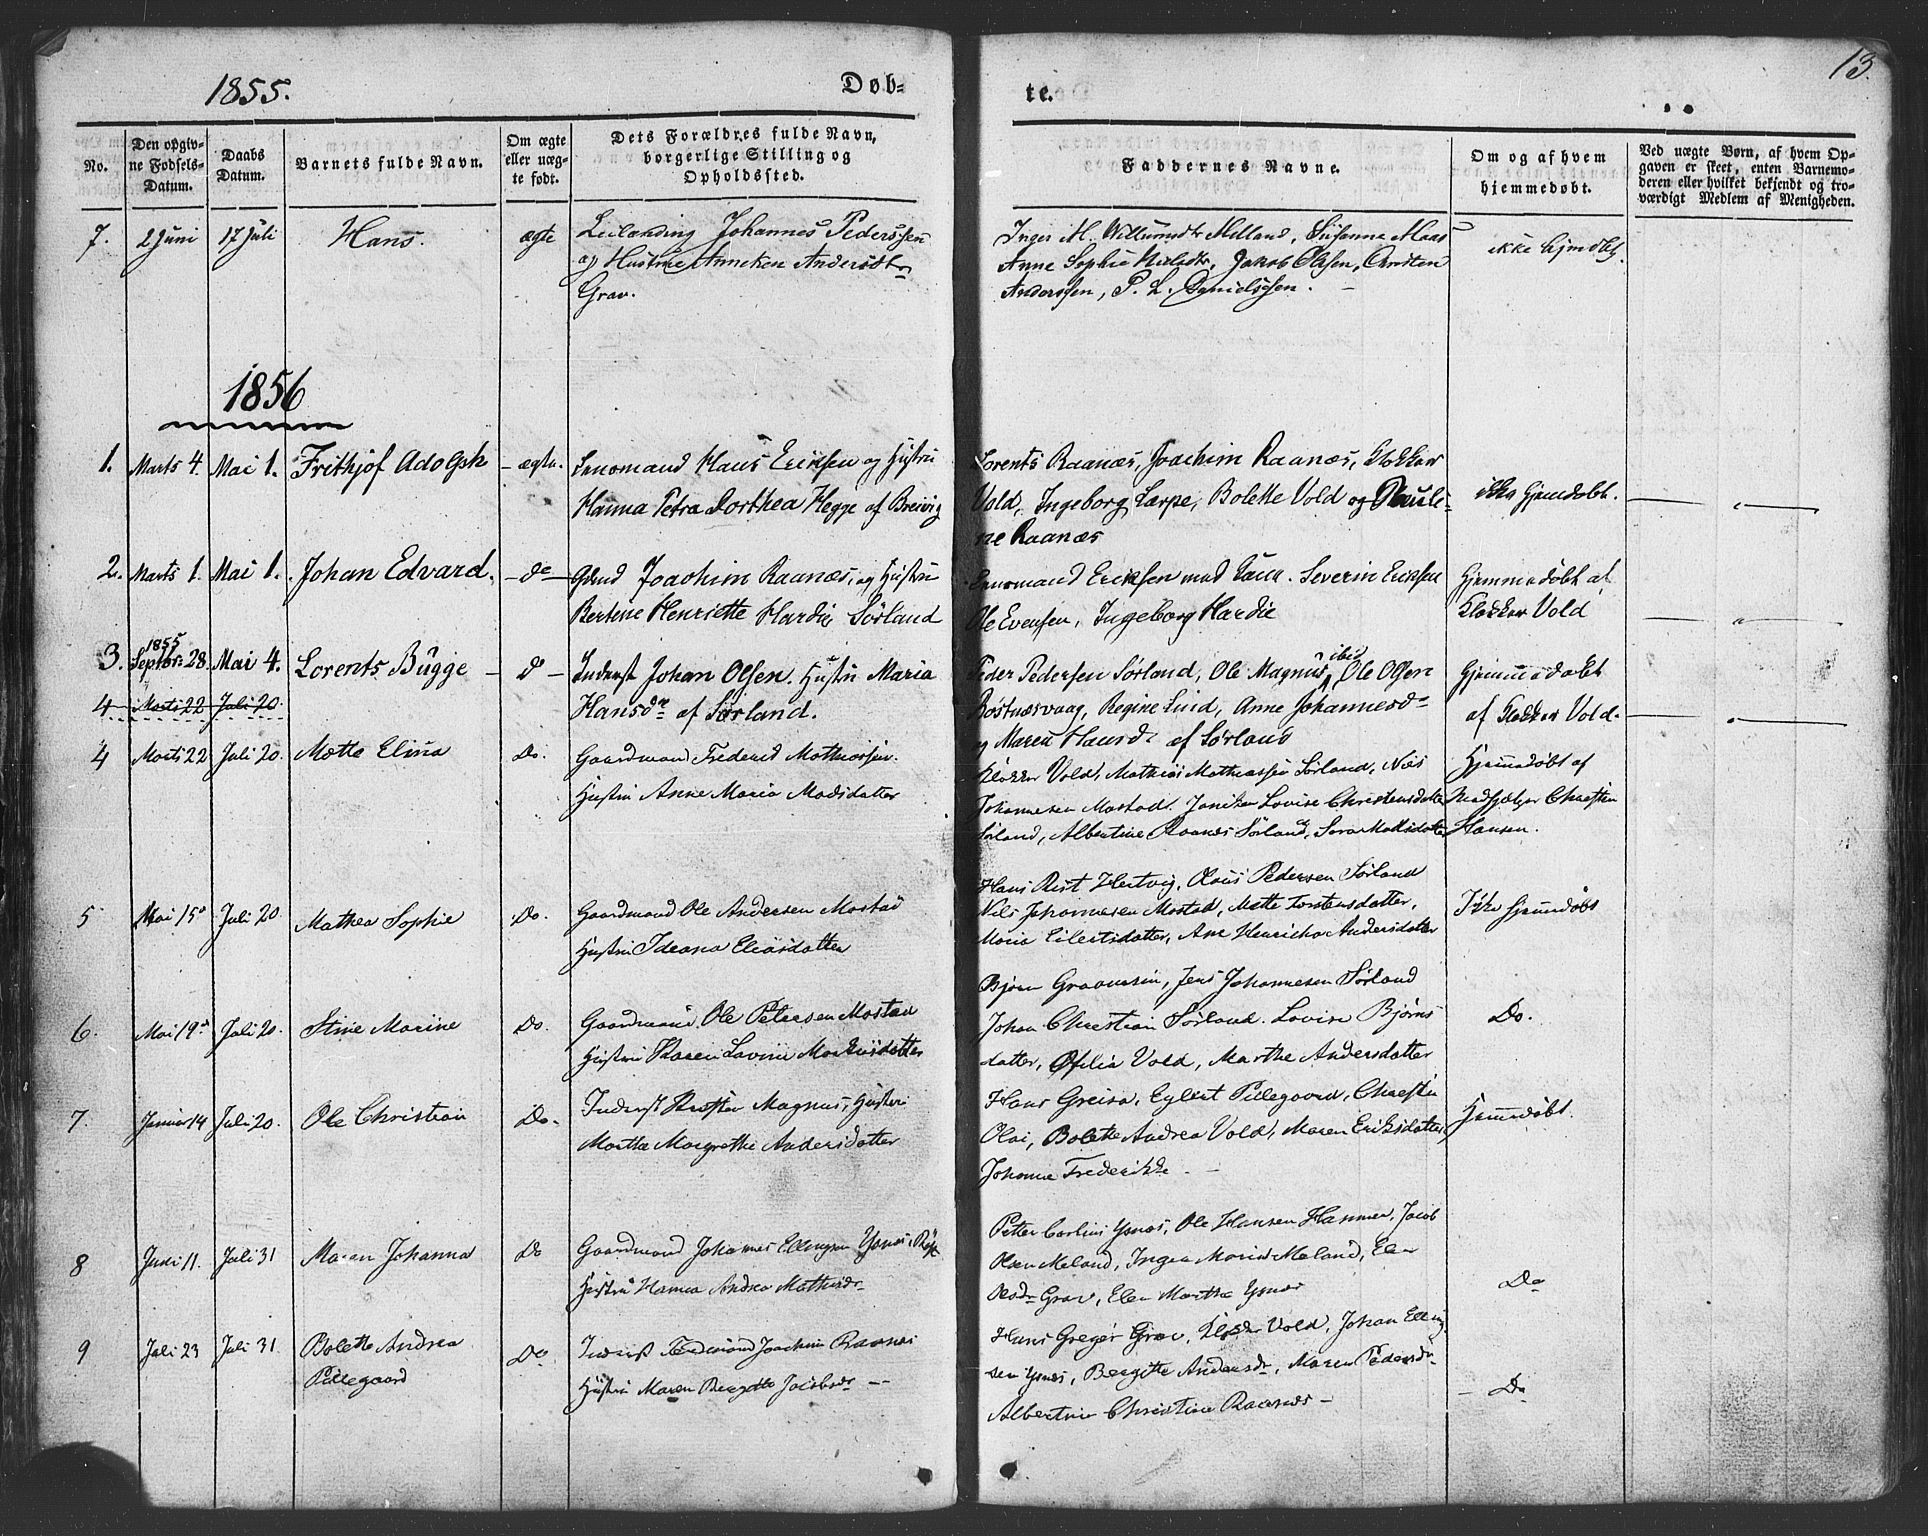 1855. Døb-
te. 13.
No.
Den opgiv-
ne Fødsels-
Datum.
Daabs
Datum.
Barnets fulde Navn.
Om ægte
eller uæg-
te født.
Dets Forældres fulde Navn,
borgerlige Stilling og
Opholdssted.
Faddernes Navne.
Om og af hvem
hjemmedøbt.
Ved uægte Børn, af hvem Op-
gaven er skeet, enten Barnemo-
deren eller hvilket bekjendt og tro-
værdigt Medlem af Menigheden.
7. 2 Juni 17 Juli Hans. ægte
Leilænding Johannes Pederssen
og Hustrue Anneken Andersdtr
Grav.
Inger M. Willumsdtr Melland, Susanne Maas
Anne Sophie Nielsdtr, Jakob Olssen, Christen
Anderssen, P. L. Danielssen.
ikke hjmdbt.
1856
1. Marts 4. Mai 1. Frithjof Adolph - ægte.
Lensmand Hans Eriksen og Hustru
Hanna Petra Dorthea Hegge af Breivig
Lorents Raanæs, Joachim Raanæs, Klokker
Vold, Ingeborg Larpe, Bolette Vold og Pauli-
ne Raanæs
ikke hjemdøbt.
2. Marts 1. Mai 1. Johan Edvard. - do -
Gdmd Joachim Raanæs, og Hustru
Bertine Henriette Hardie Sørland
Lensmand Eriksen med . Severin Eriksen
Ole Evensen, Ingeborg Hardie
Hjemmedøbt af
Klokker Vold
3. 1855 Septbr: 28. Mai 4. Lorents Bugge - do -
Inderst Johan Olsen. Hustru Maria
Hansdtr af Sørland.
Peder Pedersen Sørland, Ole Magnus ibid, Ole Olsen
Røstnæsvaag, Regine Lind, Anne Johannesdtr
og Maren Hansdtr af Sørland
Hjemmedøbt
af Klokker Vold.
4 Marts 22 Juli 20.
4 Marts 22 Juli 20. Mette Elina Do.
Gaardmand Frederik Mathiassen.
Hustru Anne Maria Madsdatter
Klokker Vold, Mathias Mathiassen Sørland, Nils
Johannesen Mostad. Janiken Lovise Christensdatter
Sørland, Albertine Raanæs Sørland, Sara Madsdatter
Hjemmedøbt af
Medhjelper Christen
Hansen.
5 Mai 15de Juli 20. Mathea Sophie Do.
Gaardmand Ole Andersen Mostad
Hustru Ideana Eliasdatter
Hans Rist Hertvig, Olaus Pedersen Sørland
Nils Johannesen Mostad, Mette Torstensdatter,
Maria Eilertsdatter, Ane Henricha Andersdatter
Ikke hjemdøbt
6. Mai 19de Juli 20. Stine Marine Do.
Gaardmand, Ole Petersen Mostad
Hustru Karen Lovise Markusdatter
Bjørn Graavesen, Jens Johannesen Sørland
Johan Christian Sørland. Lovise Bjørns
datter, Ofilia Vold, Marthe Andersdatter
Do.
7. Januar 14 Juli 20. Ole Christian Do.
Inderst Kristen Magnus, Hustru
Martha Margrethe Andersdatter
Hans Greisa, Eylert Pillegaard, Christen
Olai, Bolette Andrea Vold, Maren Eriksdatter,
Johanna Frederikke -
Hjemmedøbt.
8 Juni 11. Juli 31 Maren Johanna Do
Gaardmand Johannes Ellingsen Ysnæs, Røst
Hustru Hanna Andrea Mathisdr
Petter Carlius Ysnæs, Ole Hansen Hammer, Jacob
Olsen Meland, Inger Maria Meland, Elen
Olsdtr Grav, Elen Martha Ysnæs
Do
9 Juli 23 Juli 31. Bolette Andrea
Pillegaard Do
Inderst Ferdinand Joachim Raanæs
Hustru Maren Bergitte Jacobsdr --
Hans Greger Grav, Klokker Vold, Johan Elling-
sen Ysnæs, Bergitte Andersdr, Maren Pedersdr
Albertine Christine Raanæs -
- Do